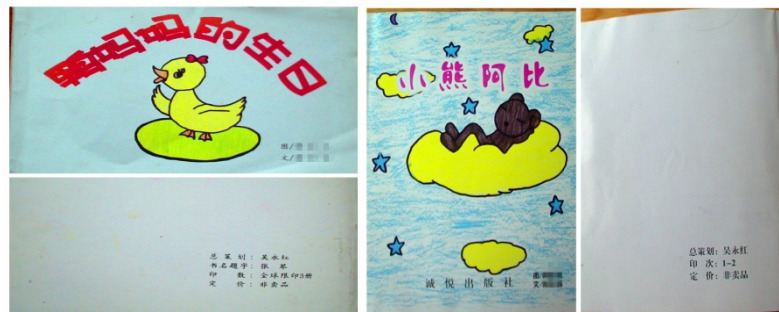 鸭妈妈的生日
图/
文/
总 策 划：吴永红
书名题字：张 琴
印 数：全球限印3册
定 价：非卖品
小熊阿比
诚悦出版社
图
文
总策划：吴永红
印 次：1-2
定 价：非卖品